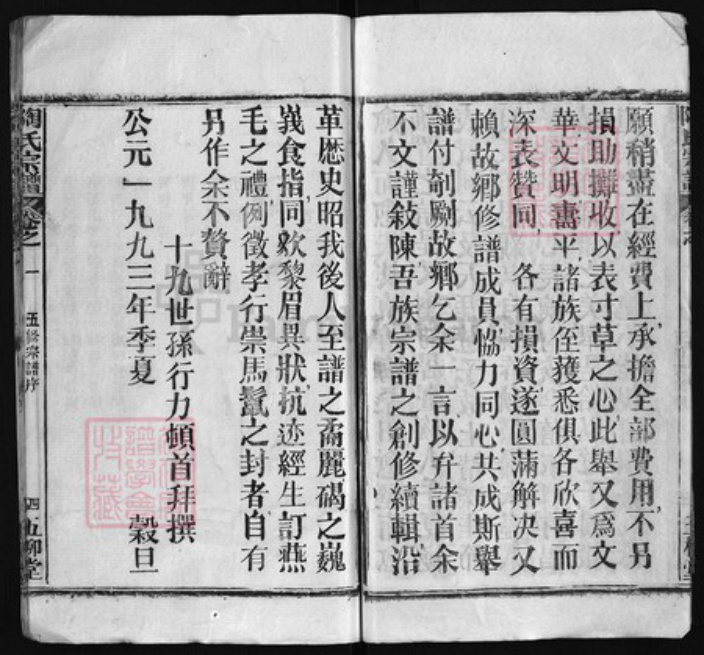 願稍盡在經費上承擔全部費用不另
損助攤收以表寸草之心此舉又爲文
華文明壽平諸族侄獲悉俱各欣喜而
深表贊同 各有損資遂圓滿解决又
賴故鄉修譜成員恊力同心共成斯舉
譜付剞劂故鄉乞余一言以弁諸首余
不文謹敍陳吾族宗譜之創修續輯沿
革歷史昭我後人至譜之矞麗碣之巍
峩食指同欢黎眉異狀抗迹經生訂燕
毛之禮例徵孝行崇馬鬣之封者自有
另作余不贅辭
十九世孫行力頓首拜撰
公元一九九三年季夏 穀旦
陶氏宗譜 卷之一 五修宗譜序 四 五柳堂